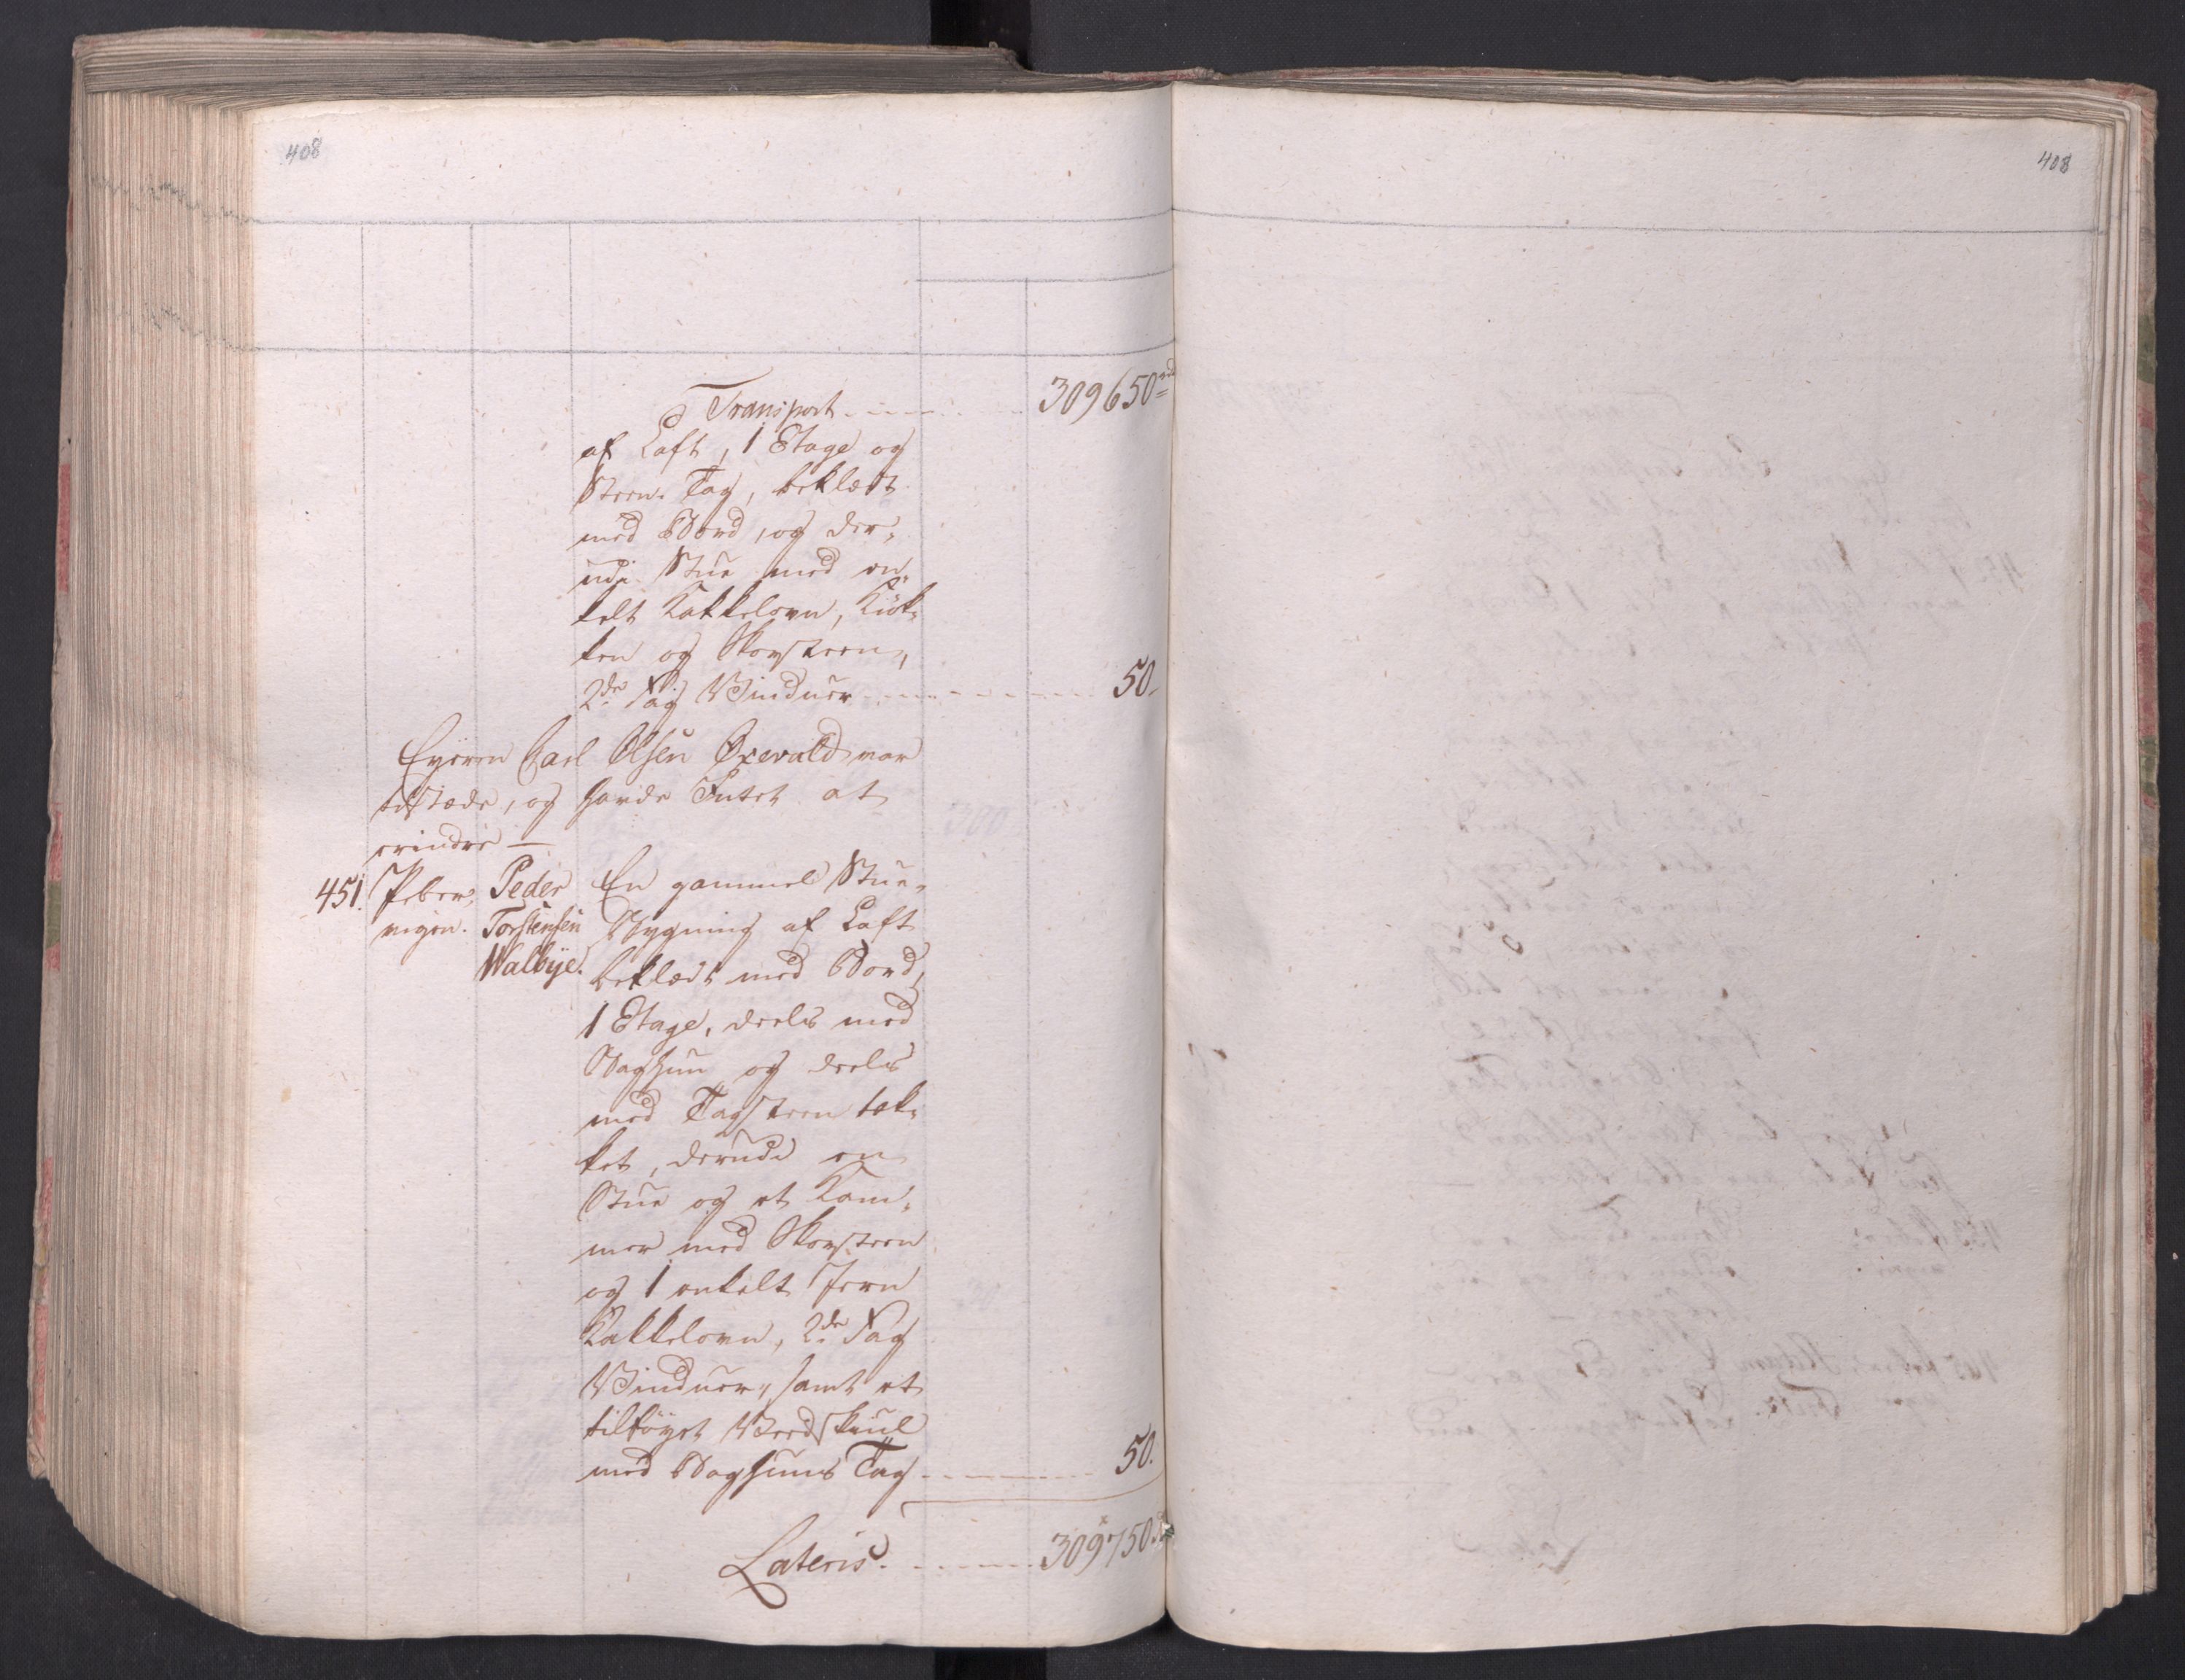 408
408
Transport 309650 rd
af Laft, 1 Etage og
Steen Tag, beklædt
med Bord, og der„
udi Stue med en„
kelt Kakkelovn, Kiök„
ken og Skorsteen,
2de Fag Vinduer 50
Eyeren Carl Olsen Oxevald var
tilstæde, og havde Intet at
erindre —
451. Peber„ Peder En gammel Stue„
vigen. Torstensen Bygning af Laft
Walbye. beklædt med Bord,
1 Etage, deels med
Baghun og deels
med Tagsteen tæk„
ket, derudi en
Stue og et Kam„
mer med Skorsteen
og 1 enkelt Jern
Kakkelovn, 2de Fag
Vinduer, samt et
tilföyet Veedskiul
med Baghuns Tag 50.
Lateris. 309750.